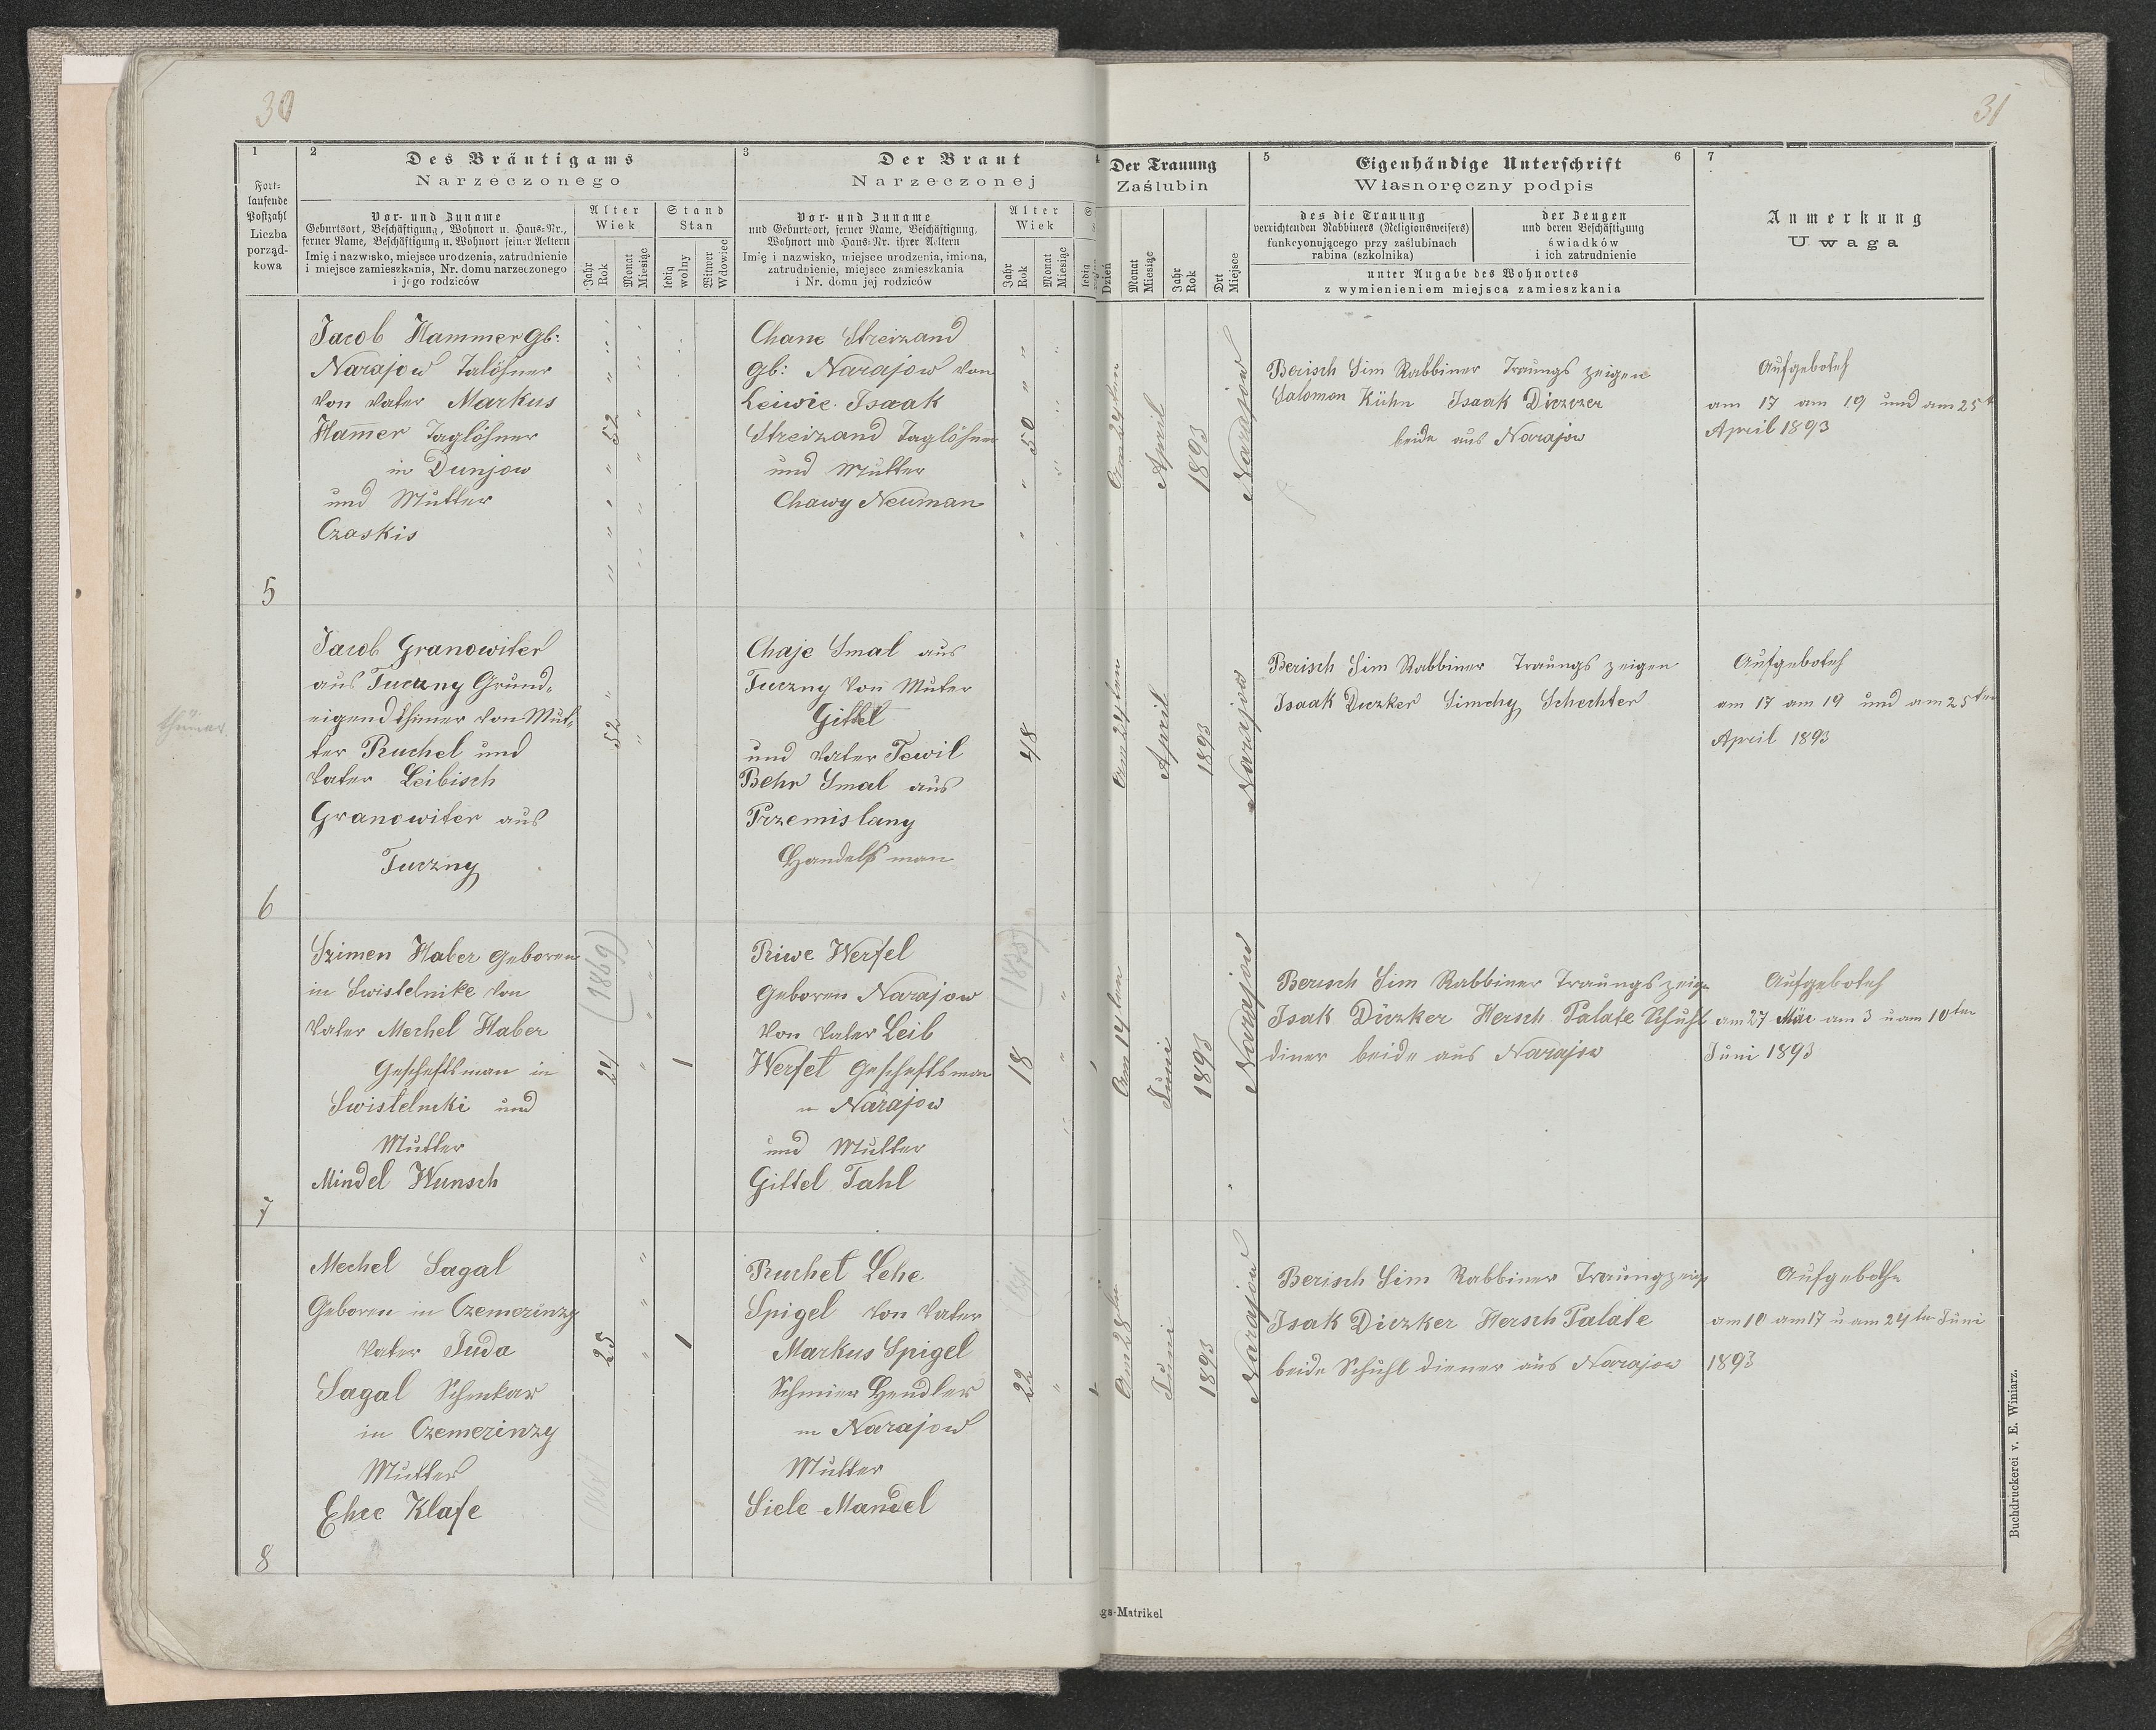 30
31
1
Fort-
laufende
Postzahl
Liczba
porząd-
kowa
2
Des Bräutigams
Narzeczonego
Vor- und Zuname
Geburtsort, Beschäftigung, Wohnort u. Haus-Nr.,
ferner Name, Beschäftigung u. Wohnort seiner Aeltern
Imię i nazwisko, miejsce urodzenia, zatrudnienie
i miejsce zamieszkania, Nr. domu narzeczonego
i jego rodziców
Alter
Wiek
Jahr
Rok
Monat
Miesiąc
Stand
Stan
ledig
wolny
Witwer
Wdowiec
3
Der Braut
Narzeczonej
Vor- und Zuname
und Geburtsort, ferner Name, Beschäftigung,
Wohnort und Haus-Nr. ihrer Aeltern
Imię i nazwisko, miejsce urodzenia, imiona,
zatrudnienie, miejsce zamieszkania
i Nr. domu jej rodziców
Alter
Wiek
Jahr
Rok
Monat
Miesiąc
ledig
4
Der Trauung
Zaślubin
Dzień
Monat
Miesiąc
Jahr
Rok
Ort
Miejsce
5
Eigenhändige Unterschrift
6
Własnoręczny podpis
des die Trauung
verrichtenden Rabbiners (Religionsweisers)
funkcyonującego przy zaślubinach
rabina (szkolnika)
der Zeugen
und deren Beschäftigung
świadków
i ich zatrudnienie
unter Angabe des Wohnortes
z wymienieniem miejsca zamieszkania
7
Anmerkung
Uwaga
5
Jacob Hammer Gb:
Narajow Talöhner
von Vater Markus
Ham̄er Taglöhner
in Dunjow
und Mutter
Czaskis
52
Chane Streizand
Gb: Narajow von
Leiwie Isaak
Streizand Taglöhner
und Mutter
Chawy Neuman
50
April
1893
Narajow
Berisch Sim Rabbiner Traungs zeigen
Salomon Kühn Isaak
beide aus Narajow
Aufgeboteh
am 17 am 19 und am 25t
April 1893
6
Jacob Granowiter
aus Tuczny Grund-
eigend thimer von Mut-
ter Ruchel und
Vater Leibisch
Granowiter aus
Tuczny
52
thümer
Chaje Smal aus
Tuczny von Muter
Gittel
und Vater Tewil
Behr Smal aus
Przemislany
Handelsman
48
April
1893
Narajow
Berisch Sim Rabbiner Traungs zeigen
Isaak Diczker Simchy Schechter
Aufgeboteh
am 17 am 19 und am 25ten
April 1893
7
Szimen Haber Geboren
in Swistelnike von
Vater Mechel Haber
Gescheftsman in
Swistelniki und
Mutter
Mindel Wunsch
(1869)
24
1
Riwe Werfel
Geboren Narajow
von Vater Leib
Werfel Gescheftsman
in Narajow
und Mutter
Gittel Tahl
(1875)
18
1
Am 14ten
Juni
1893
Narajow
Berisch Sim Rabbiner Traungs zeige
Isak Diczker Hersch Palate Schuhl
diner beide aus Narajow
Aufgeboteh
am 27 Mai am 3 u am 10ten
Juni 1893
8
Mechel Sagal
Geboren in Czemerinzy
Vater Juda
Sagal Schenkar
in Czemerinzy
Mutter
Klafe
25
1
Ruchel Lehe
Spigel von Vater
Markus Spigel
Schnier Hendler
in Narajow
Mutter
Siele Mandel
22
1
Juni
1893
Narajow
Berisch Sim Rabbiner Traungzeige
Isak Diczker Hersch Palate
beide Schuhl diener aus Narajow
Aufgebothe
am 10 am 17 u am 24ten Juni
1893
gs-Matrikel
Buchdruckerei v. E. Winiarz.